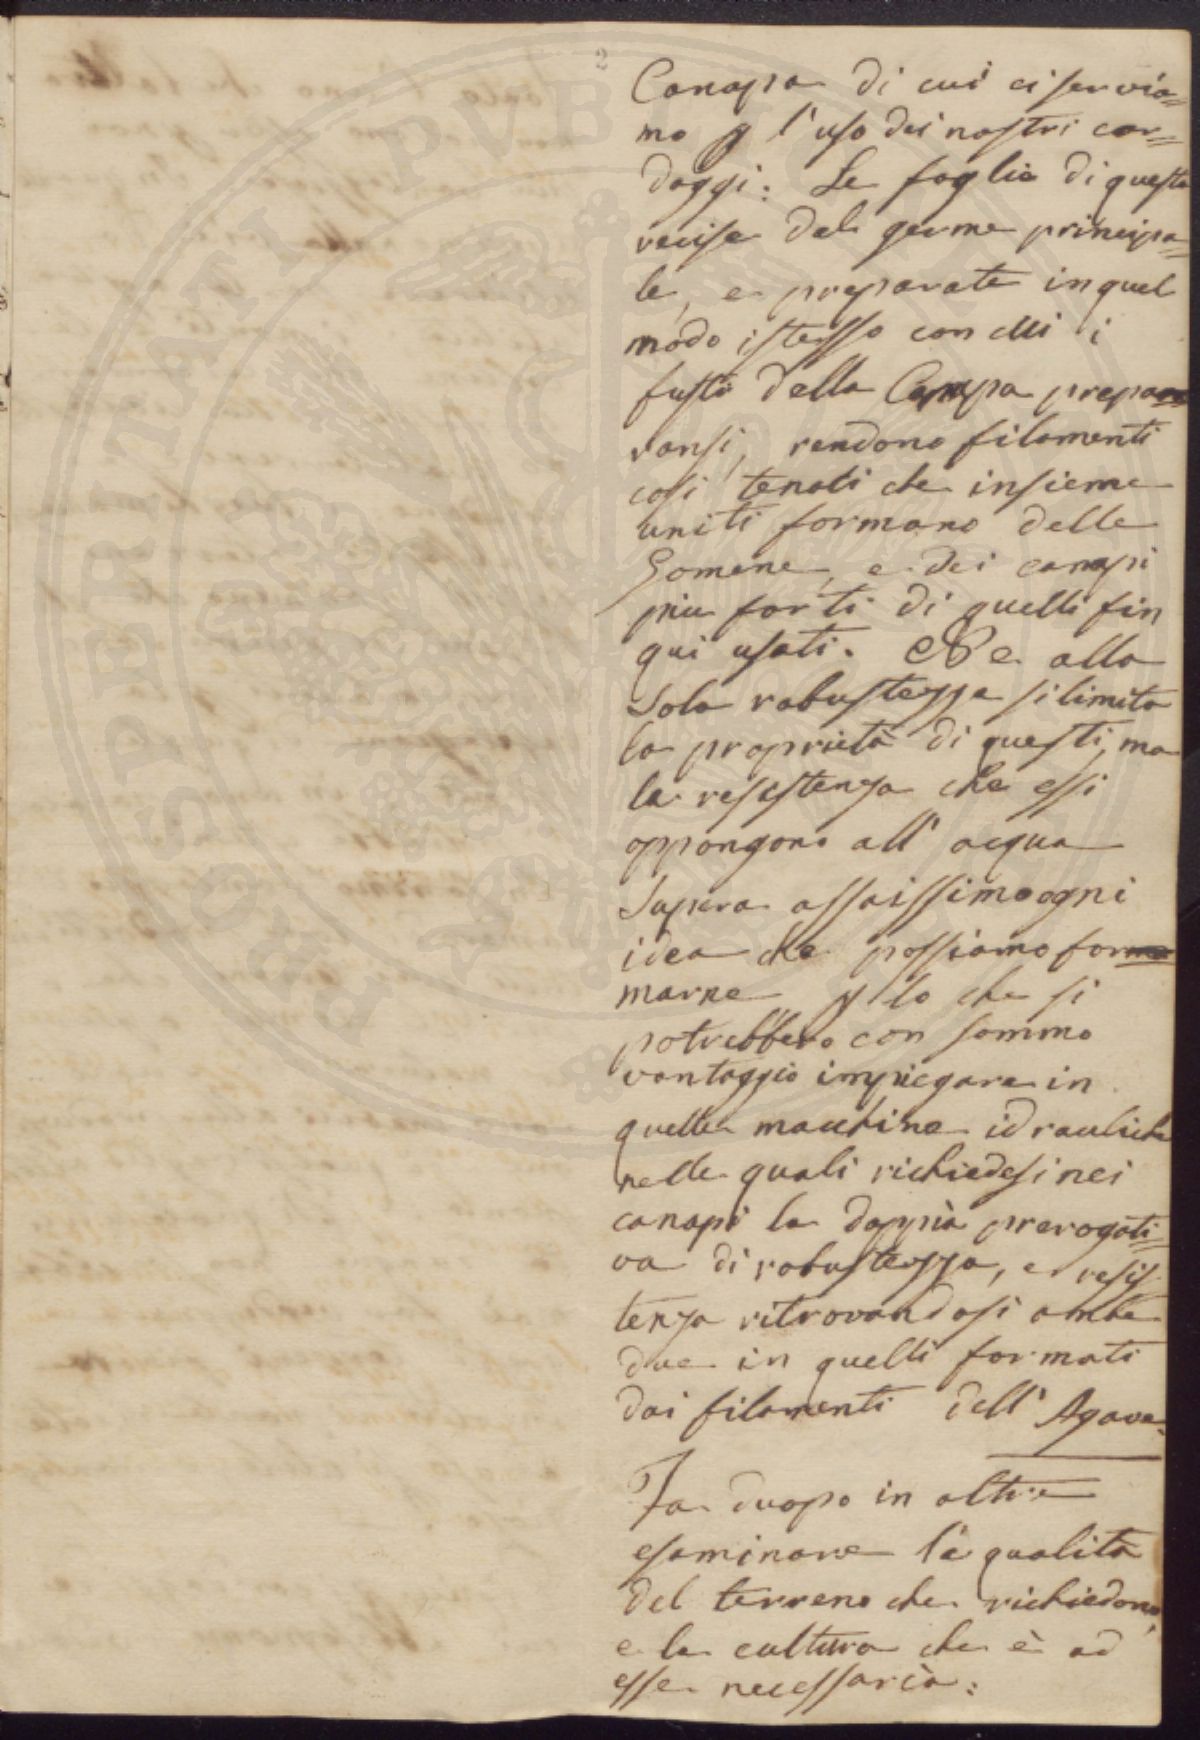 2
Canapa di cui ci servia=
mo p l'uso dei nostri cor=
daggi: Le foglie di queste
recise dal germe principa=
le, e preparate in quel
modo istesso con cui i
fusti della Canapa prepa
ransi, rendono filamenti
così tenaci che insieme
uniti formano delle
Gomene, e dei canapi
più forti di quelli fin
qui usati. Ne alla
sola robustezza si limita
la proprietà di questi, ma
la resistenza che essi
oppongono all' acqua
supera assaissimo ogni
idea che possiamo for
marne p lo che si
potrebbero con sommo
vantaggio impiegare in
quelle macchine idrauliche
nelle quali richiedesi nei
canapi la doppia prerogati=
va di robustezza, e resis
tenza ritrovandosi ambe
due in quelli formati
dai filamenti dell' Agave.
Fa duopo in oltre
esaminare la qualità
del terreno che richiedono,
e la cultura che è ad
esse necessaria:
PROSPERITATI PVBLICAE